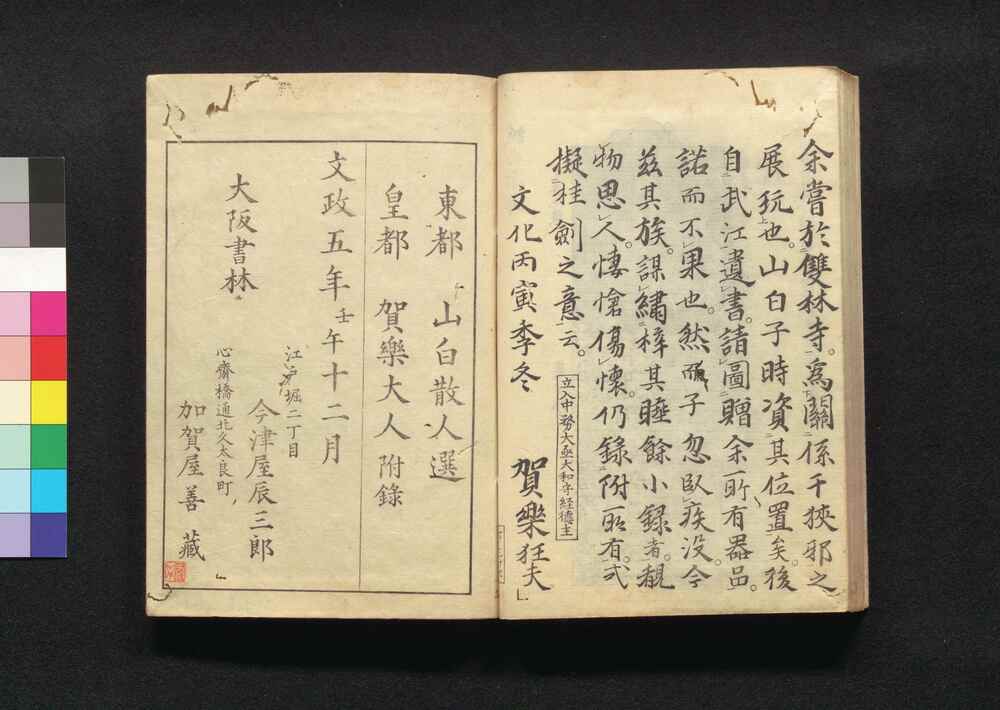 余嘗於雙林寺。為關係千狹邪之
展玩也。山白子時資其位置矣。後
自武江遺書。請圖贈余一所有器品。
諾而不果也。然而子忽臥疾没。今
茲其族。謀繡梓其睡餘小録者。覩
物思人。悽愴傷懷。仍録附所有。弍
擬挂劍之意云。
文化丙寅季冬
賀樂狂夫
立入中務大丞大和守経徳主
東都 山白散人選
皇都 賀樂大人附録
文政五年壬午十二月
大阪書林
江戸堀二丁目
今津屋辰三郎
心齋橋通北久太良町
加賀屋善藏